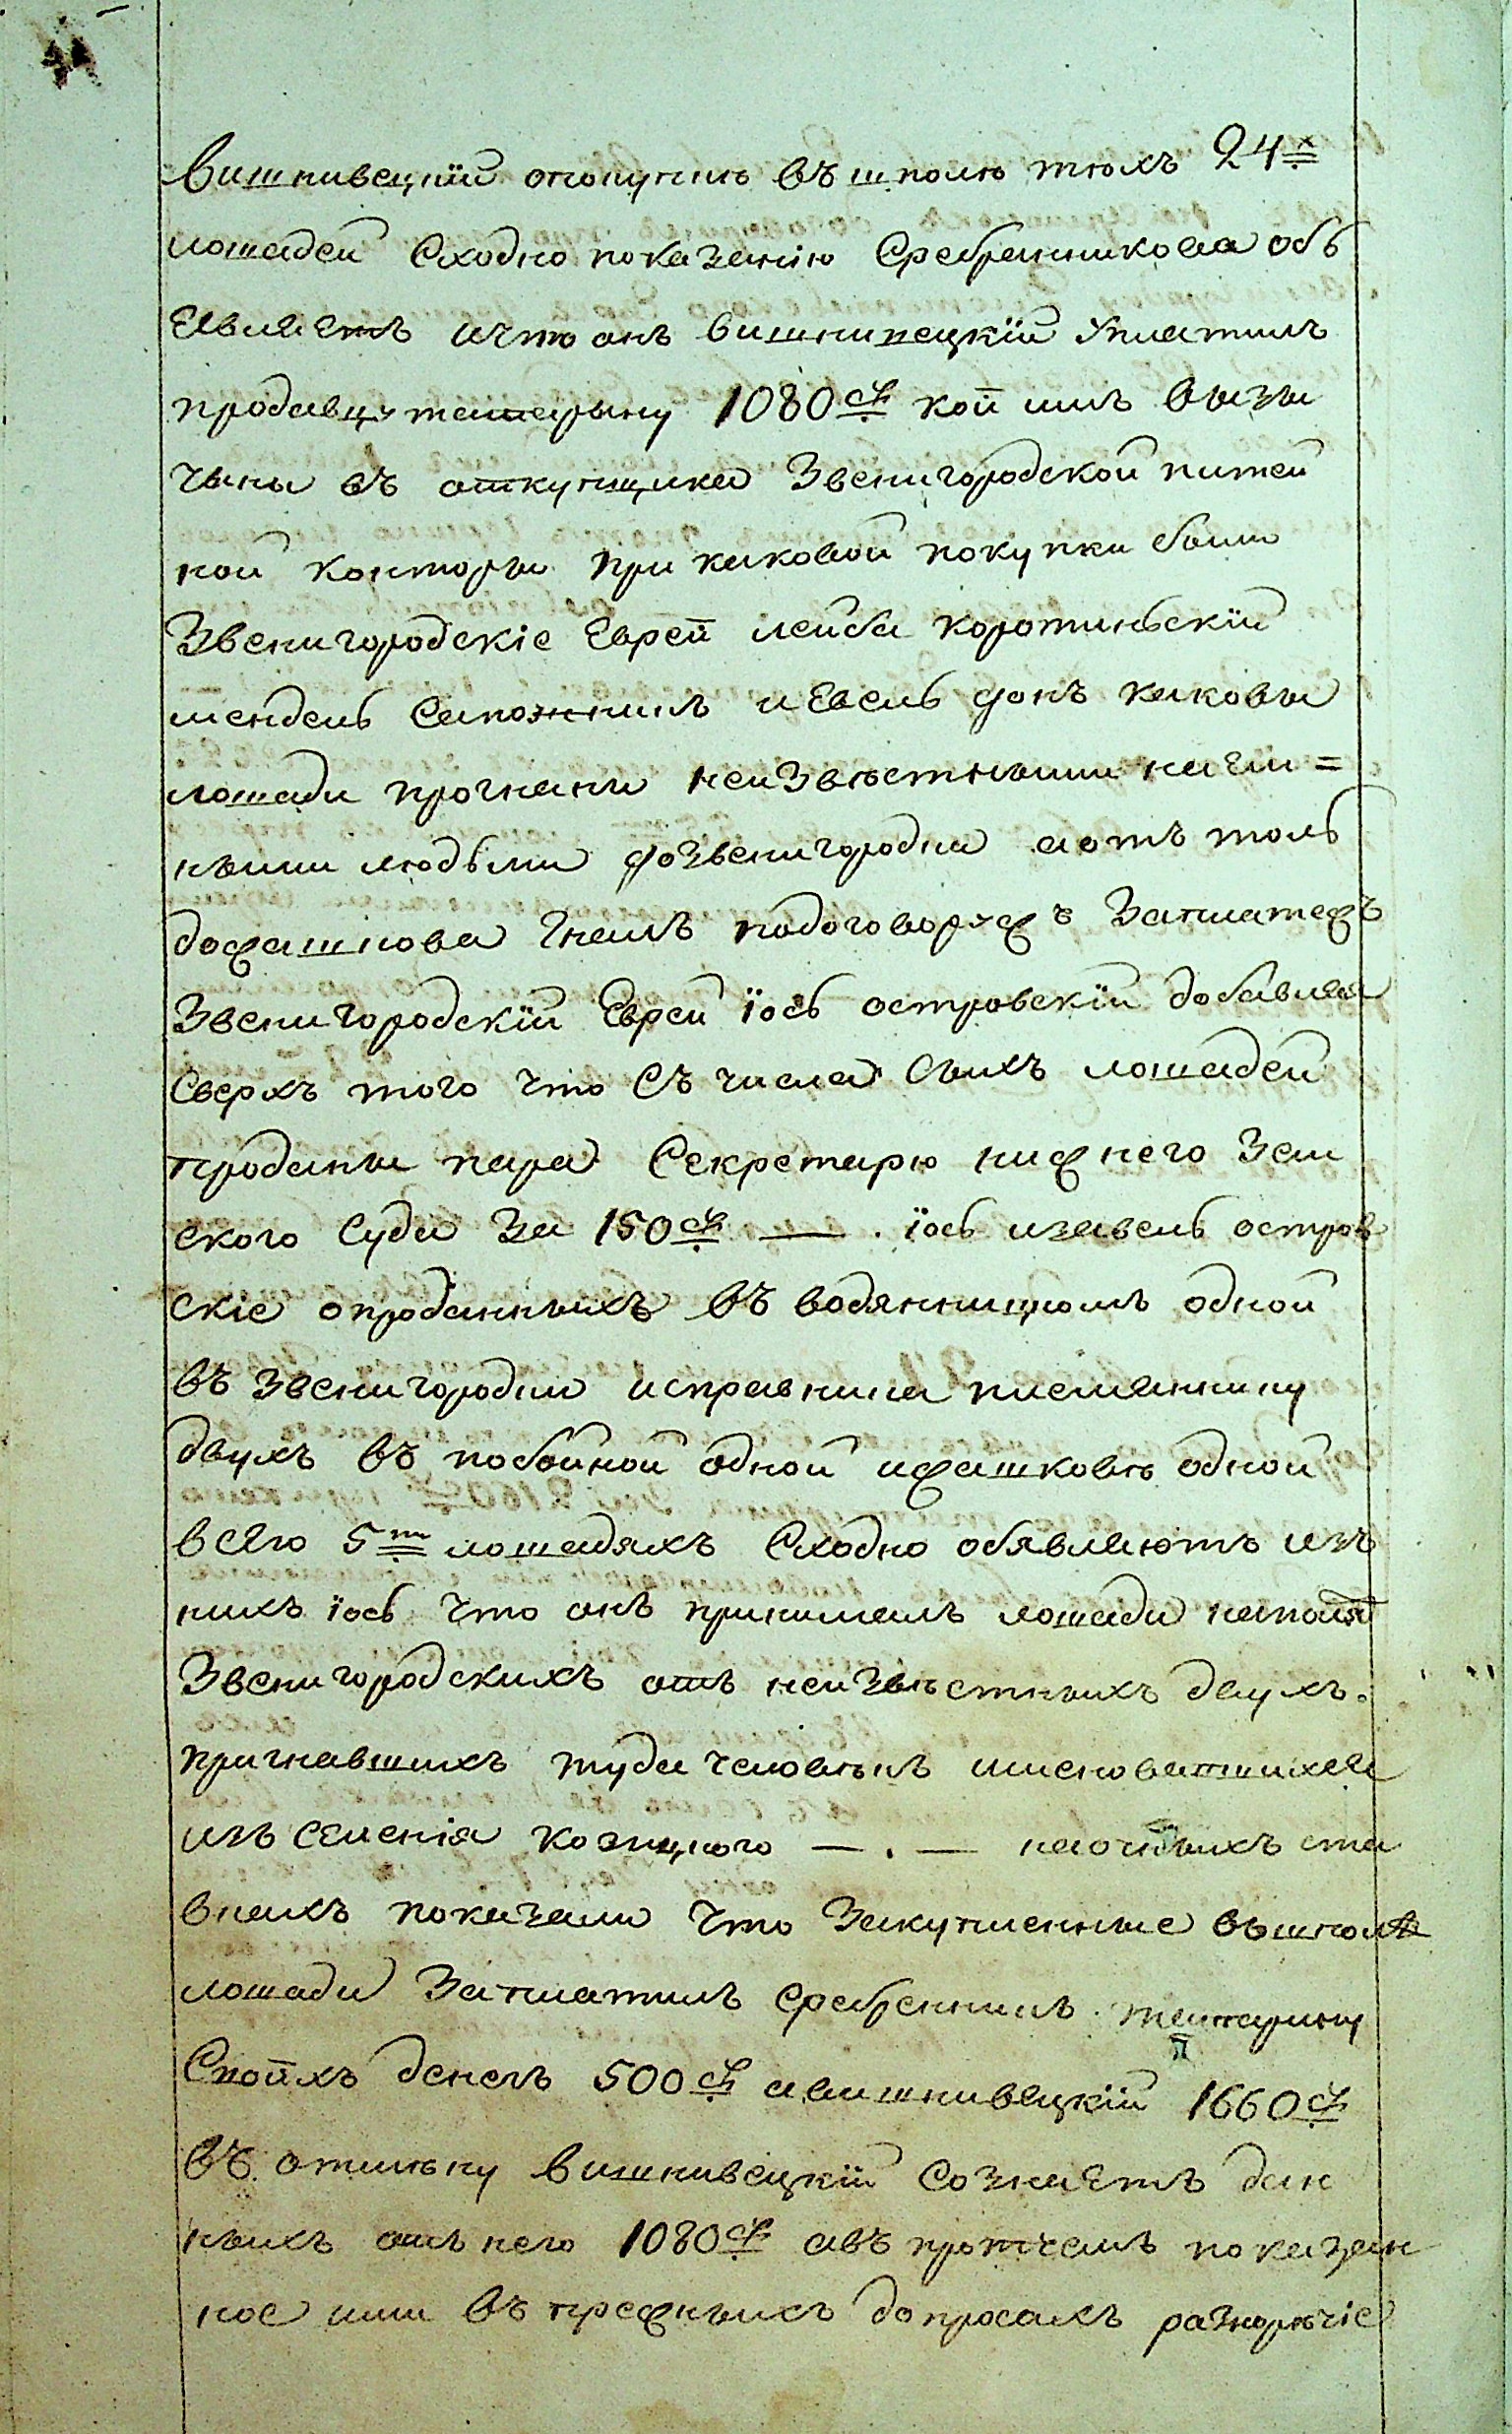 Вишнивецкій отопучить въ шполю тѣхъ 24х
лошадей Сходно показанію Сребренникова объ
Евляетъ ичто онъ вишнивецкій Уплатилъ
продавцу тетерыну 1080 ср кои имъ взызы
чены въ откупщика Звенигородской питей
ной конторы при каковой покупки были
Звенигородскіе Еврей лейба коротинскій
мендель Сапожникъ иЕвель донъ каковы
лошади прогнаны неизвѣстными наЕм=
ными людьми доЗвенигородки аоттъ толь
доѳашкова гналъ подоговорѫ Заплатежъ
Звенигородскій Еврей їось островскій добавляя
Сверхъ того что Съ числа Сихъ лошадей
проданы пара Секретарю нижнего Зем
ского Суда За 150 ср — . їось изавель остров
скіе опроданныхъ въ водянницкомъ одной
въ звенигородки исправника племяннику
двухъ въ побойной одной иѳашковѣ одной
всЕго 5ти лошадяхъ Сходно обявляютъ изъ
нихъ їось что онъ принималъ лошади наполя
Звенигородскихъ отъ неизвѣстныхъ двухъ.
пригнавшихъ туда человѣкъ именовавшихся
изъ селенія козацкого — . — наочныхъ ста
вкахъ показали что Закупленные вшполѣ
лошади Заплатилъ Сребренникъ тетерину
Споихъ денегъ 500 ср авишнивецкій 1660 ср
въ отмѣну Вишнивецкій СознаЕтъ дан
ныхъ отъ него 1080 ср авъ протчемъ показан
ное ими въ прежныхъ допросахъ разнорѣчіе